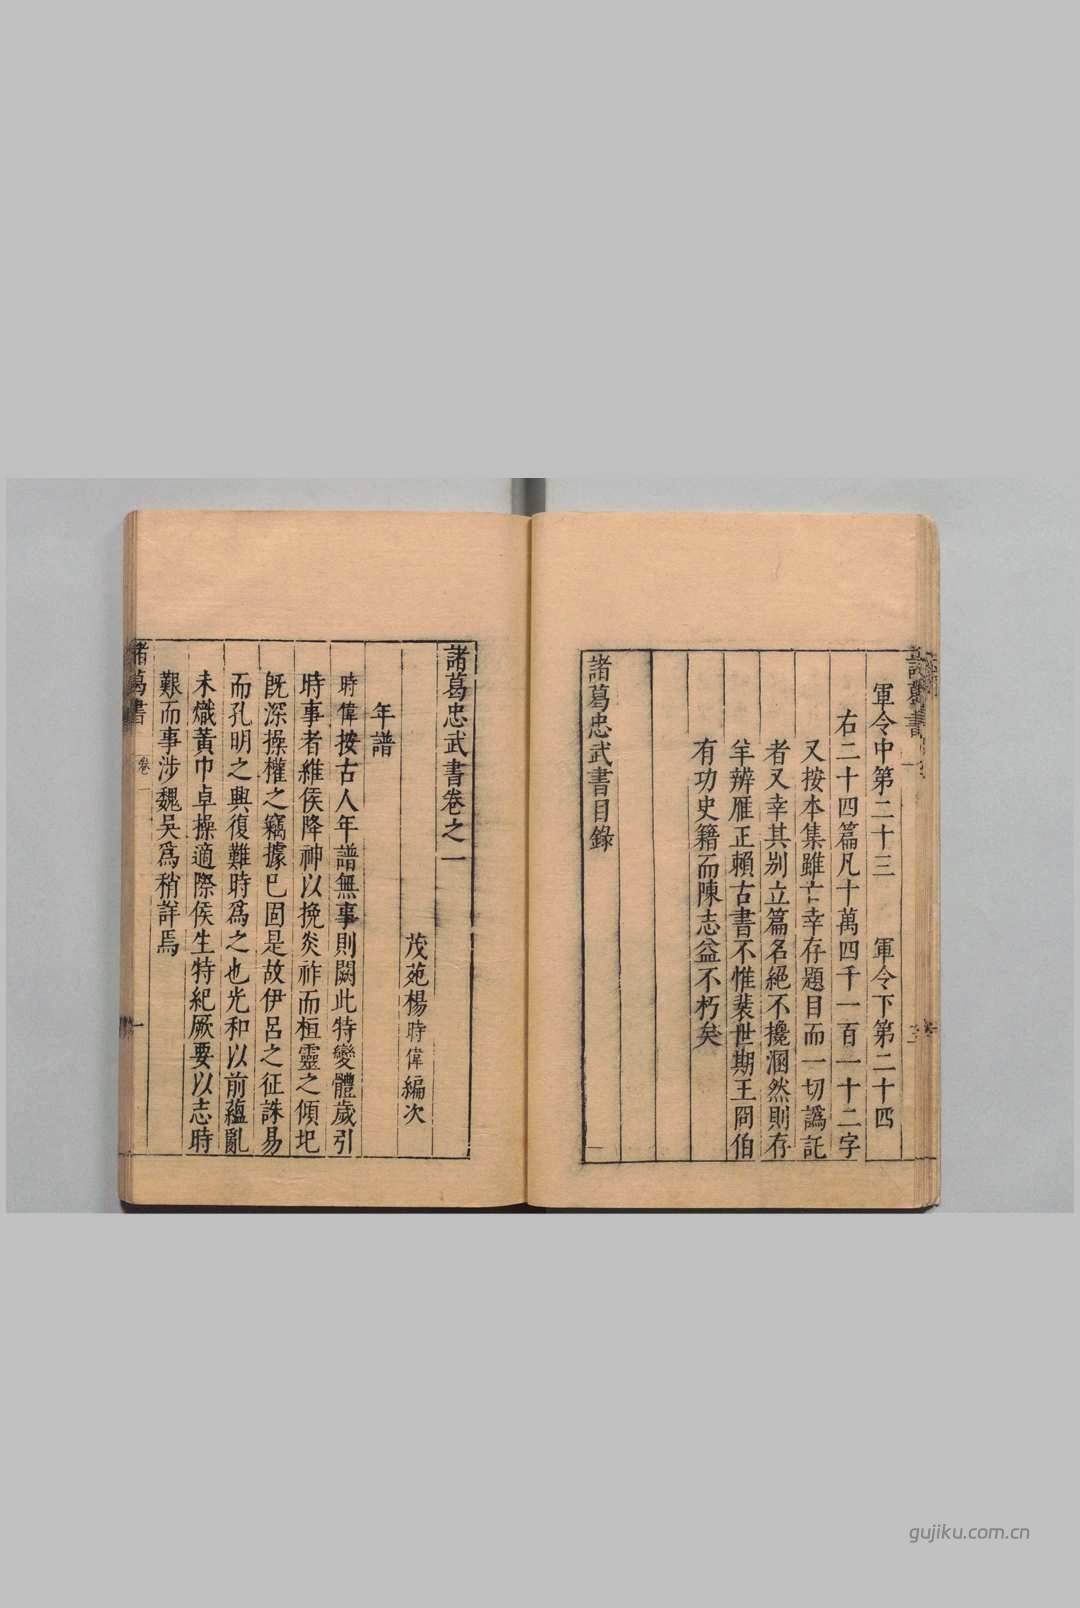 軍令中第二十三　軍令下第二十四
右二十四篇凡十萬四千一百一十二字
又按本集雖亡幸存題目而一切譌託
者又幸其别立篇名絕不攙溷然則存
羊辨雁正賴古書不惟裴世期王冏伯
有功史籍而陳志益不朽矣
諸葛忠武書目錄
諸葛忠武書卷之一
茂苑楊時偉編次
年譜
時偉按古人年譜無事則闕此特變體歲引
時事者維侯降神以挽炎祚而桓靈之傾圮
旣深操權之竊據已固是故伊呂之征誅易
而孔明之興復難時爲之也光和以前蘊亂
未熾黃巾卓操適際侯生特紀厥要以志時
艱而事涉魏吳爲稍詳焉
諸葛書
卷一
一
gujiku.com.cn